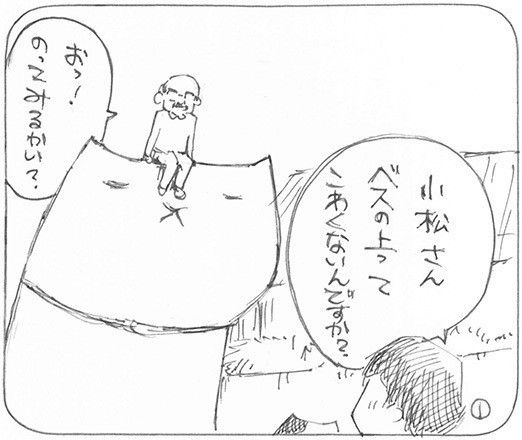 小松さん
ベスの上って
こわくないんですか?
おっ!
のってみるかい?
①